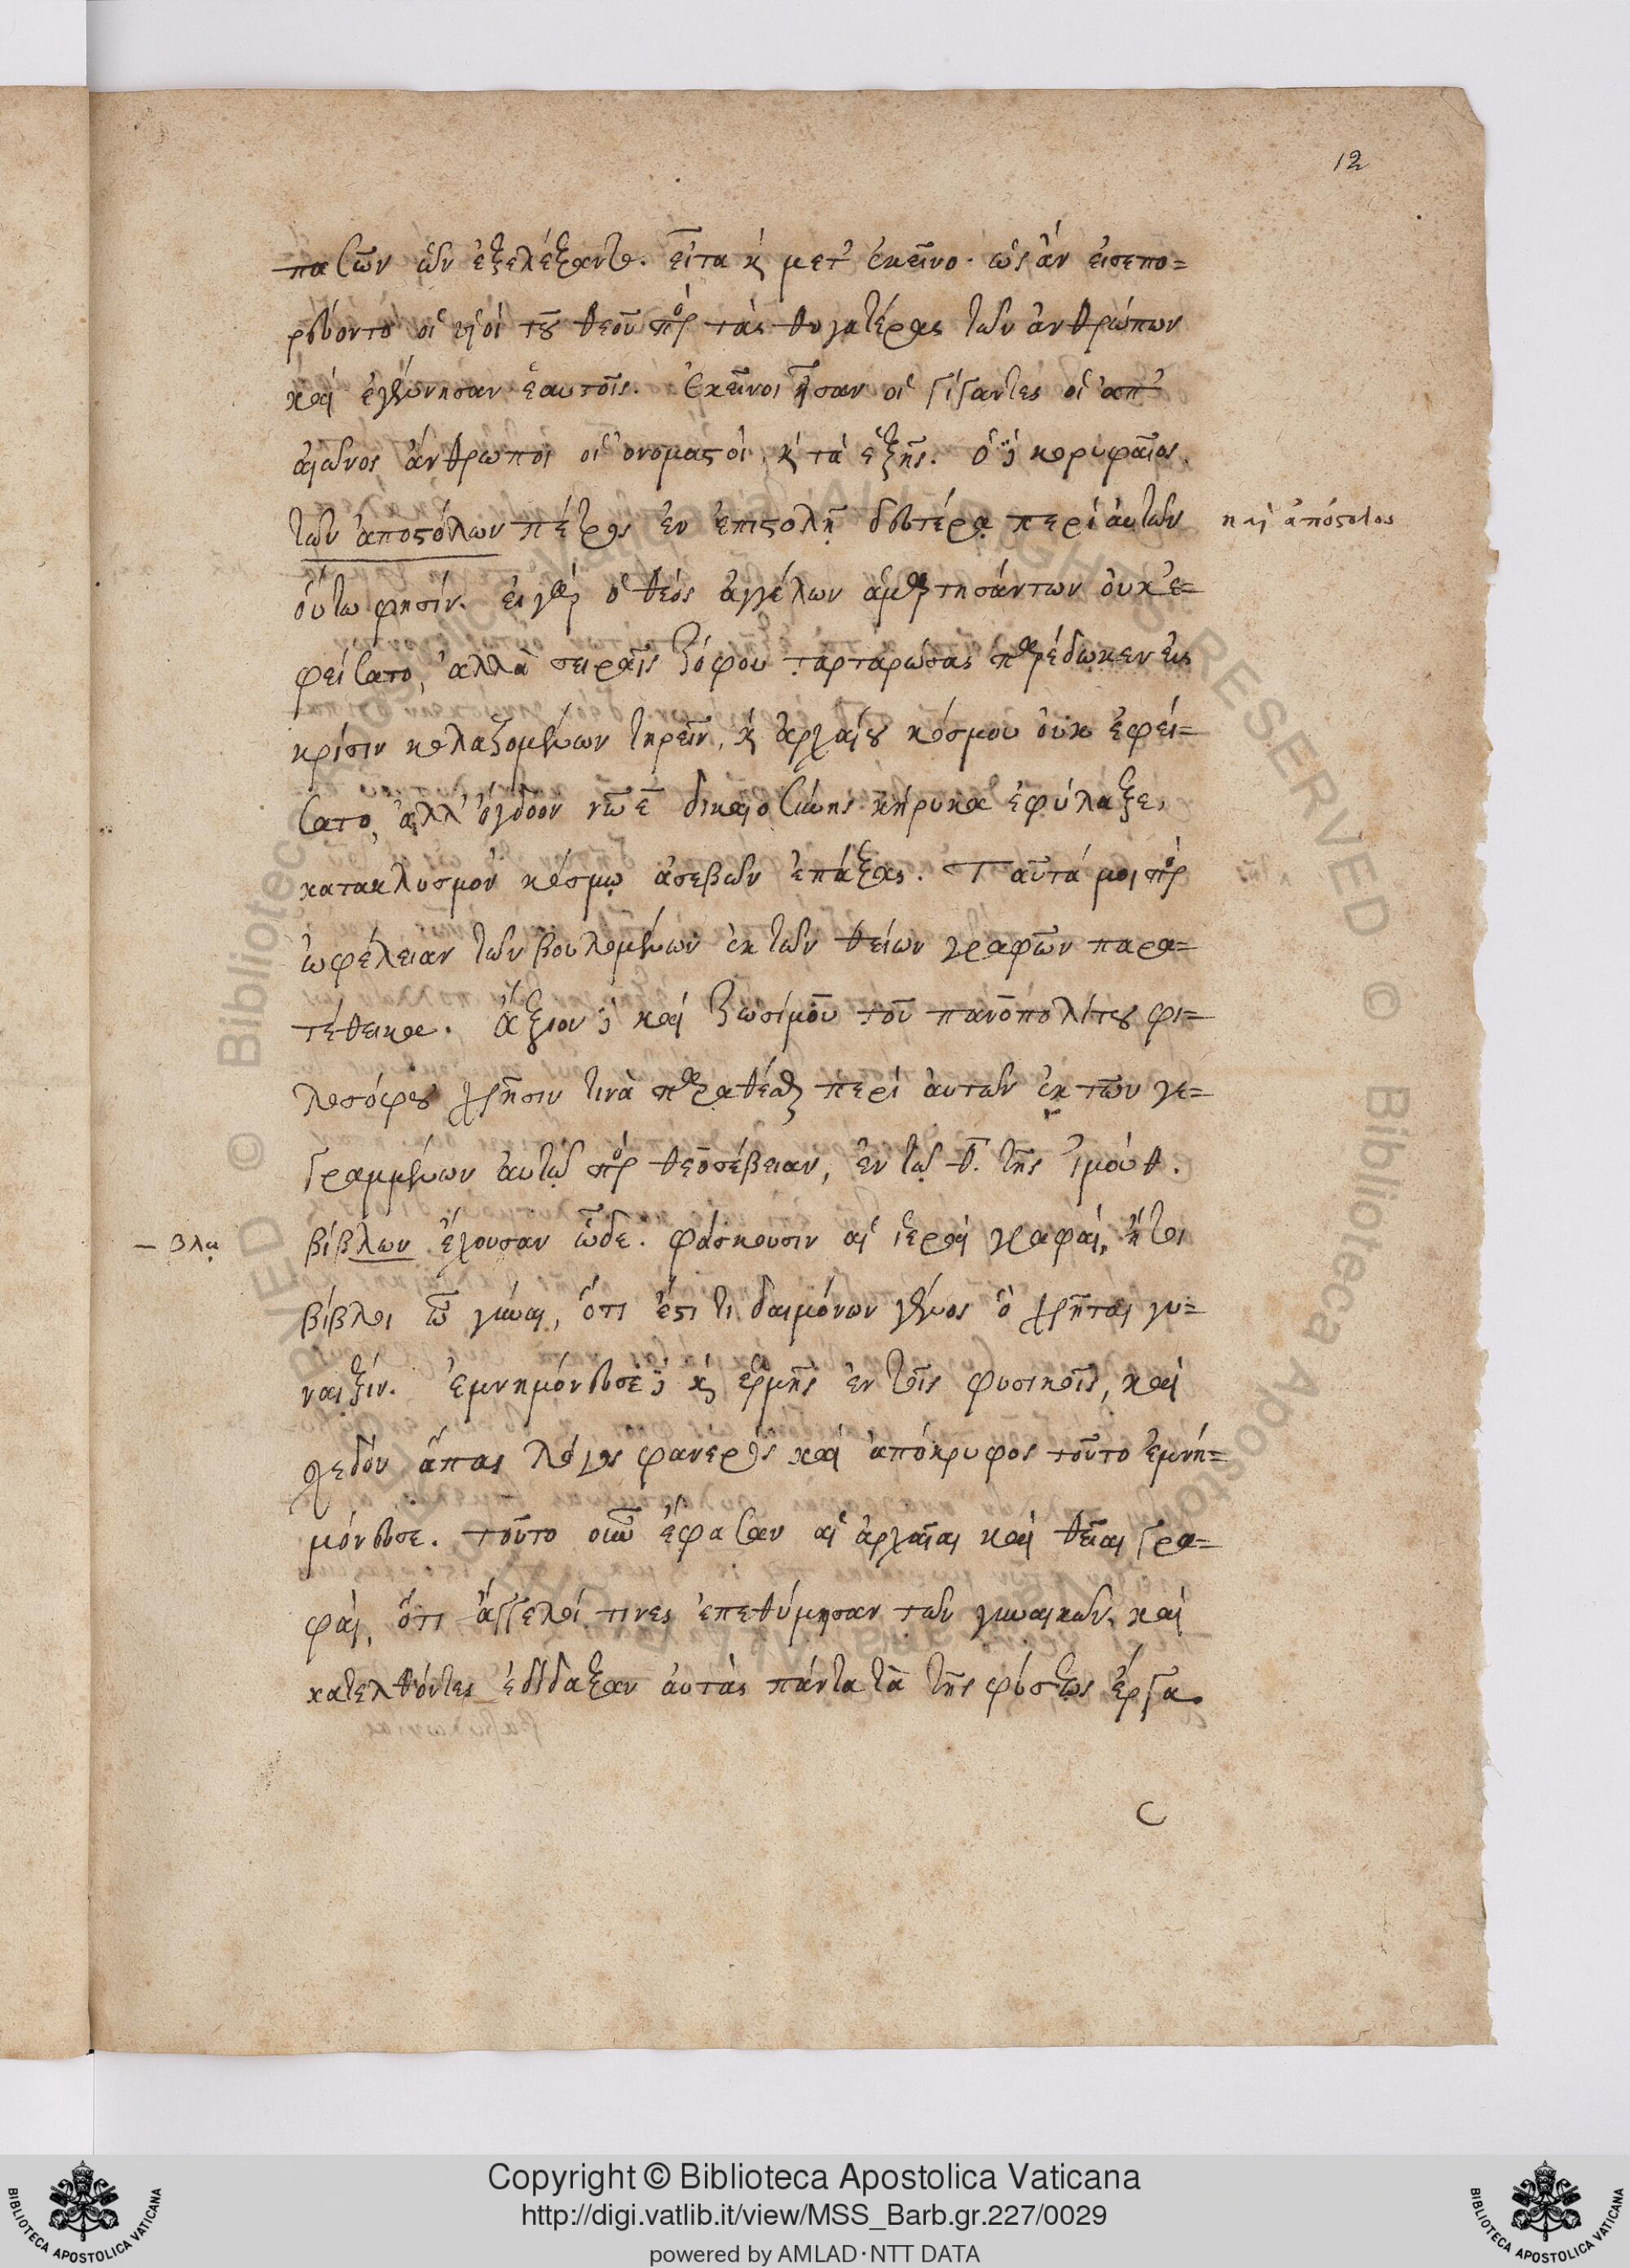 12
πασῶν ὧν ἐξελέξαντο. εἶτα κ̀ μετ' ἐκεῖνο· ὡς ἂν εἰσεπο=
ρεύοντο οἱ υἱοὶ τοῦ θεοῦ πρὸς τὰς θυγατέρας τῶν ἀνθρώπων
καὶ ἐγέννησαν ἑαυτοῖς. ἐκεῖνοι ἦσαν οἱ γίγαντες οἱ ἀπ'
αἰῶνος ἄνθρωποι οἱ ὀνομαστοί, κ̀ τὰ ἑξῆς. ὁ δὲ κορυφαῖος
τῶν ἀποστόλων πέτρος ἐν ἐπιστολῇ δευτέρᾳ περὶ αὐτῶν
καὶ ἀπόστολος
οὕτω φησίν. εἰ γὰρ ὁ θεὸς ἀγγέλων ἁμαρτησάντων οὐκ ἐ=
φείσατο, ἀλλὰ σειραῖς ζόφου ταρταρώσας παρέδωκεν εἰς
κρίσιν κολαζομένων τηρεῖν, κ̀ ἀρχαίου κόσμου οὐκ ἐφεί=
σατο, ἀλλ' ὄγδοον νῶε δικαιοσύνης κήρυκα ἐφύλαξε,
κατακλυσμὸν κόσμῳ ἀσεβῶν ἐπάξας. Ταῦτά μοι πρὸς
ὠφέλειαν τῶν βουλομένων ἐκ τῶν θείων γραφῶν παρα=
τέθεικα. ἄξιον δὲ καὶ ζωσίμου τοῦ πανοπολίτου φι=
λοσόφου χρῆσίν τινα παραθέσθαι περὶ αὐτῶν ἐκ τῶν γε=
γραμμένων αὐτῷ πρὸς θεοσέβειαν, ἐν τῷ θ. τῆς ἰμούθ.
– βλῳ
βίβλων ἔχουσαν ὧδε. φάσκουσιν αἱ ἱεραὶ γραφαί, ἤτοι
βίβλοι ὦ γύναι, ὅτι ἔστι τι δαιμόνων γένος ὃ χρῆται γυ=
ναιξίν. ἐμνημόνευσε δὲ κ̀ ἑρμῆς ἐν τοῖς φυσικοῖς, καὶ
σχεδὸν ἅπας λόγος φανερὸς καὶ ἀπόκρυφος τοῦτο ἐμνή=
μόνευσε. τοῦτο οὖν ἔφασαν αἱ ἀρχαῖαι καὶ θεῖαι γρα=
φαί, ὅτι ἄγγελοί τινες ἐπεθύμησαν τῶν γυναικῶν, καὶ
κατελθόντες ἐδίδαξαν αὐτὰς πάντα τὰ τῆς φύσεως ἔργα.
C
Copyright © Biblioteca Apostolica Vaticana
http://digi.vatlib.it/view/MSS_Barb.gr.227/0029
powered by AMLAD·NTT DATA
BIBLIOTECA APOSTOLICA VATICANA
BIBLIOTECA APOSTOLICA VATICANA